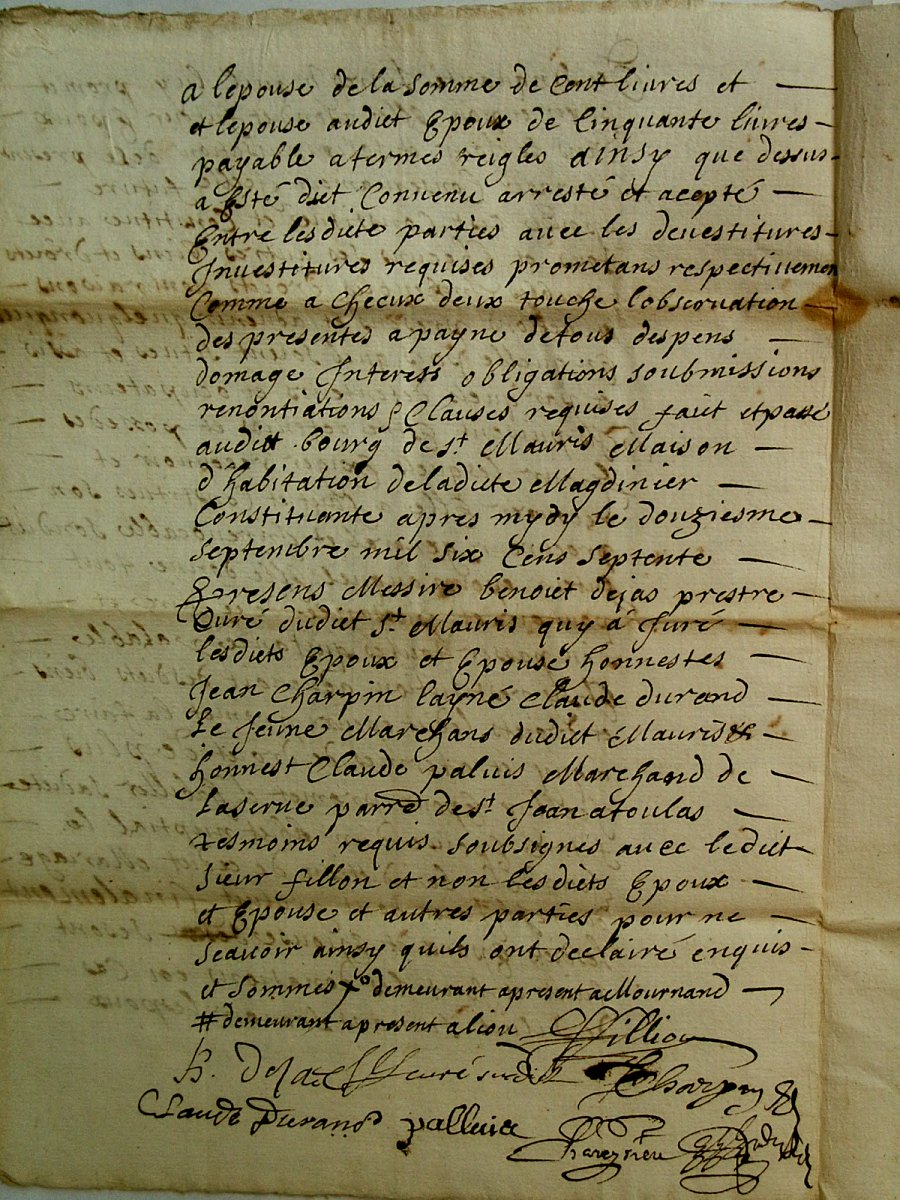 a lepouse de la somme de Cent livres et
et lepouse audiet Epoux de Cinquante livres
payable a termes reigles ainsy que dessus
a Esté diet Convenu arresté et acepté
Entre lesdiete parties avec les devestitures
Investitures requises prometans respectivemen
Comme a checux deux touche lobservation
des presentes a payne de tous despens
domage Interests obligations soubmissions
renontiations & Clauses requises fait et passé
audit bourg de st Mauris Maison
d'habitation de ladicte Magdinier
Constituante apres mydy le douziesme
septembre mil six Cens septente
Presens Messire benoiet dejas prestre
Curé dudiet st Mauris quy a Juré
lesdiets Epoux et Epouse honnestes
Jean Charpin layné Claude durand
le Jeune Marchans dudiet Mauris
honnest Claude paluis Marchand de
Laserve parre de st Jean a toulas
tesmoins requis soubsignes avec lediet
sieur fillon et non lesdiets Epoux
et Epouse et autres parties pour ne
scavoir ainsy quils ont declairé enquis
et sommes xo demeurant apresent a Mournand
# demeurant apresent a liou
Charpin
Claude Durand palluis